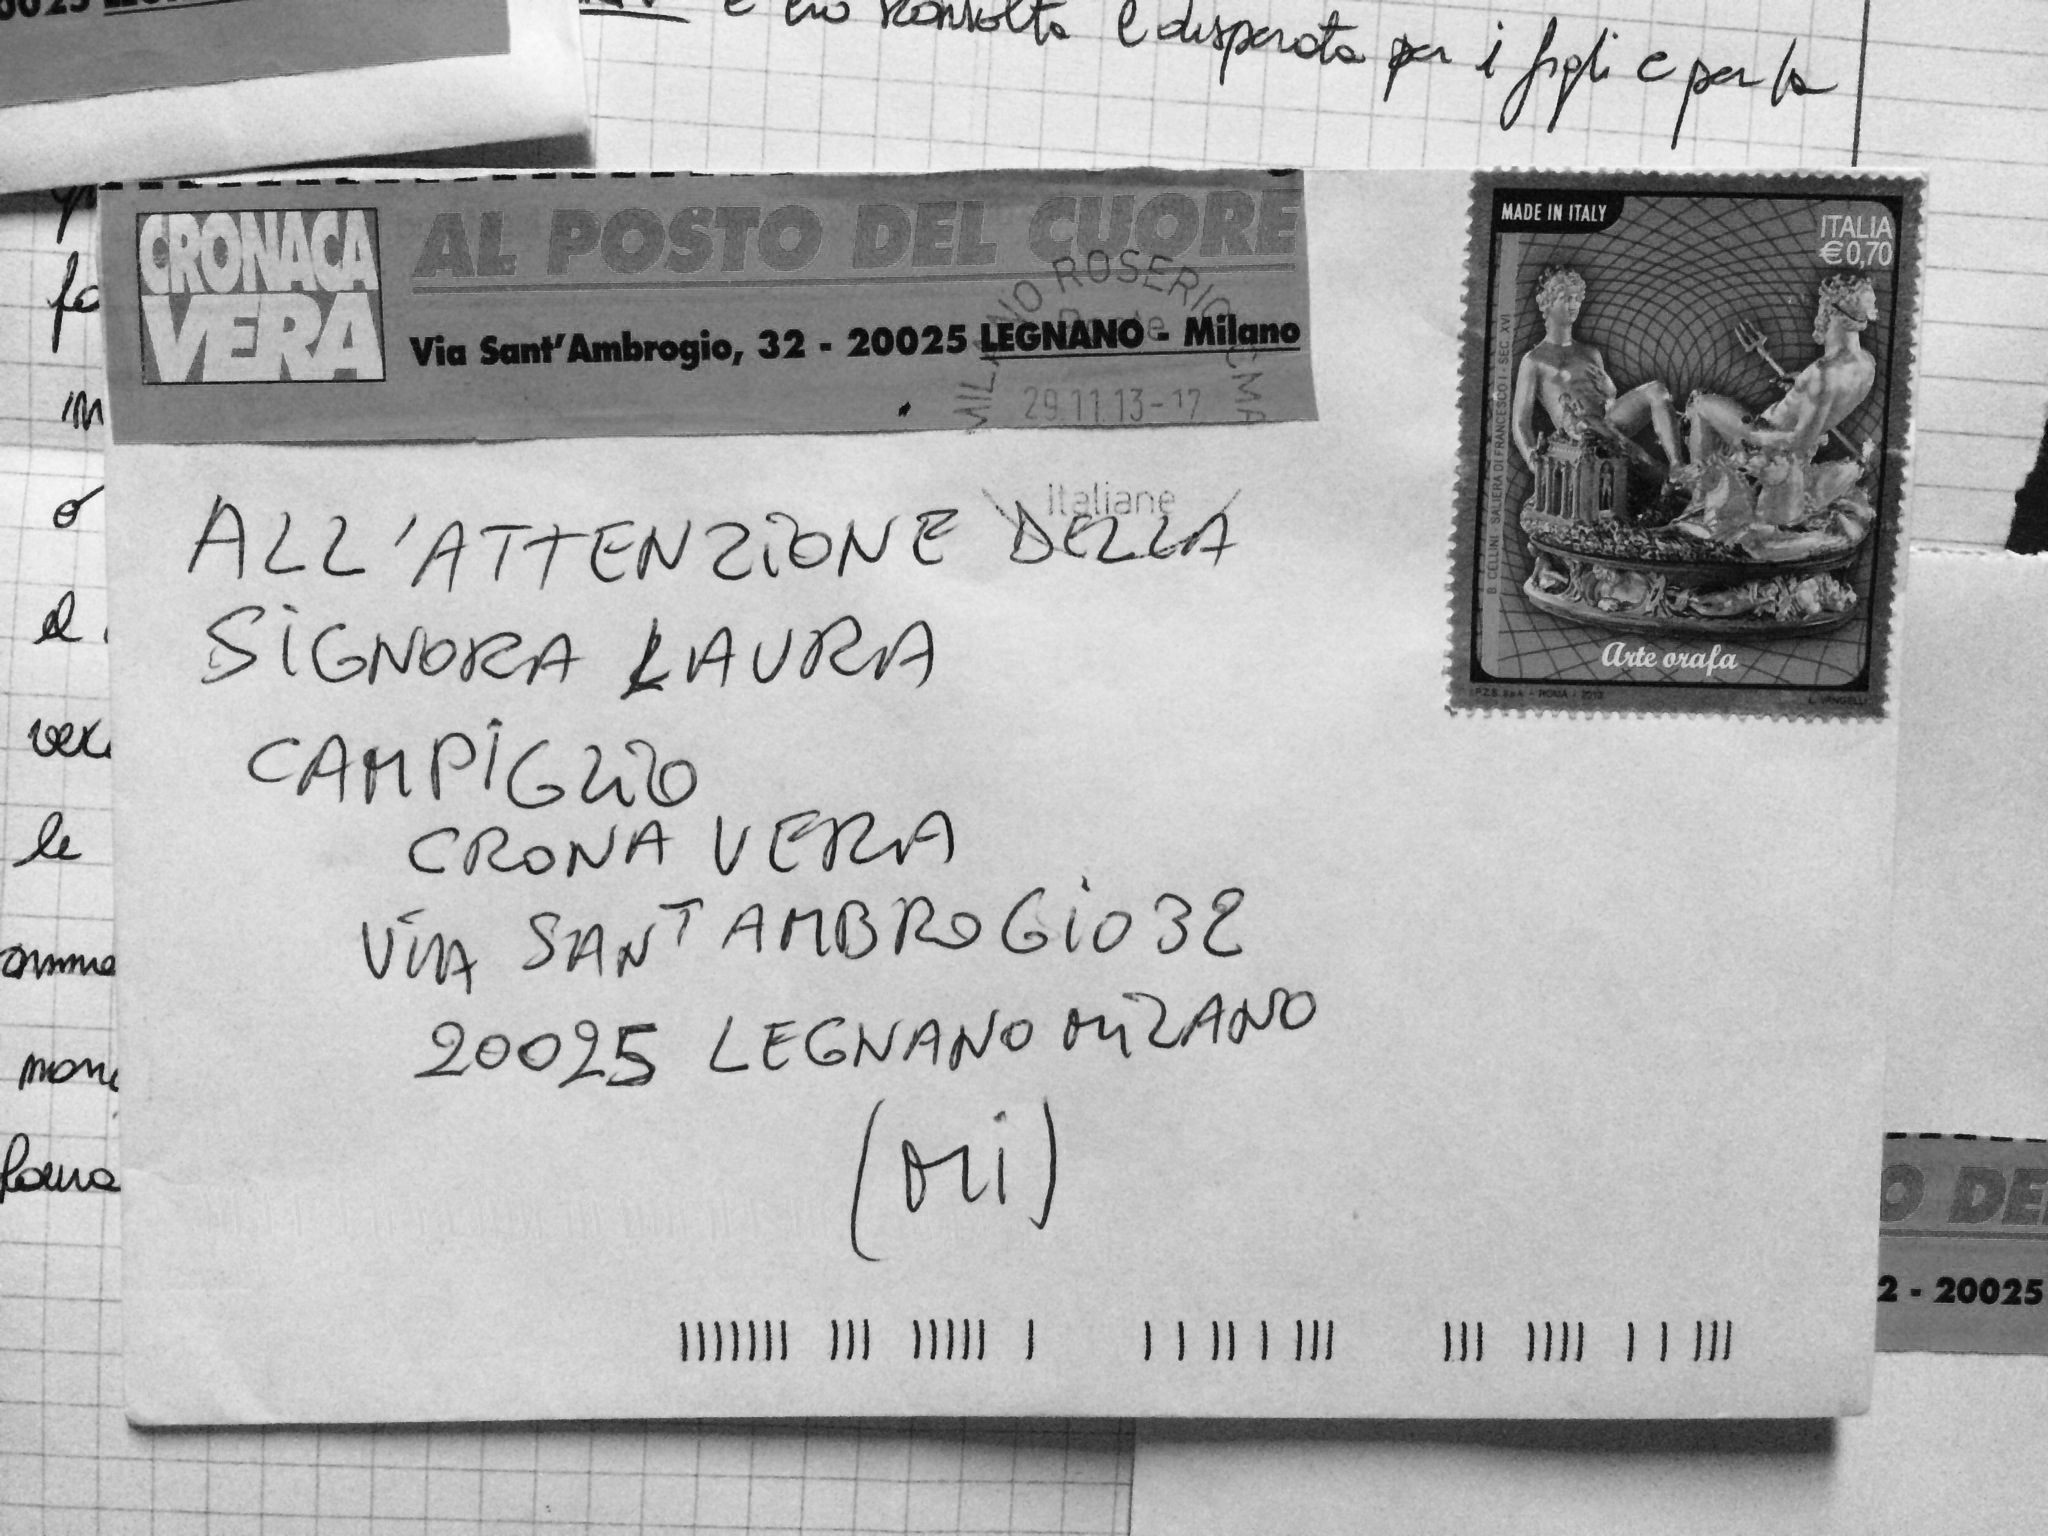 20025
e ero sconvolta e disperata per i figli e per la
CRONACA
VERA
AL POSTO DEL CUORE
Via Sant'Ambrogio, 32 - 20025 LEGNANO - Milano
MILANO ROSERIO CMP
29.11.13-17
Italiane
MADE IN ITALY
ITALIA
€0,70
B. CELLINI SALIERA DI FRANCESCO I - SEC. XVI
Arte orafa
I.P.Z.S. S.p.A. - ROMA - 2013
ALL'ATTENZIONE DELLA
SIGNORA LAURA
CAMPIGLIO
CRONA VERA
VIA SANT AMBROGIO 32
20025 LEGNANO MILANO
(MI)
le
O DE
2 - 20025